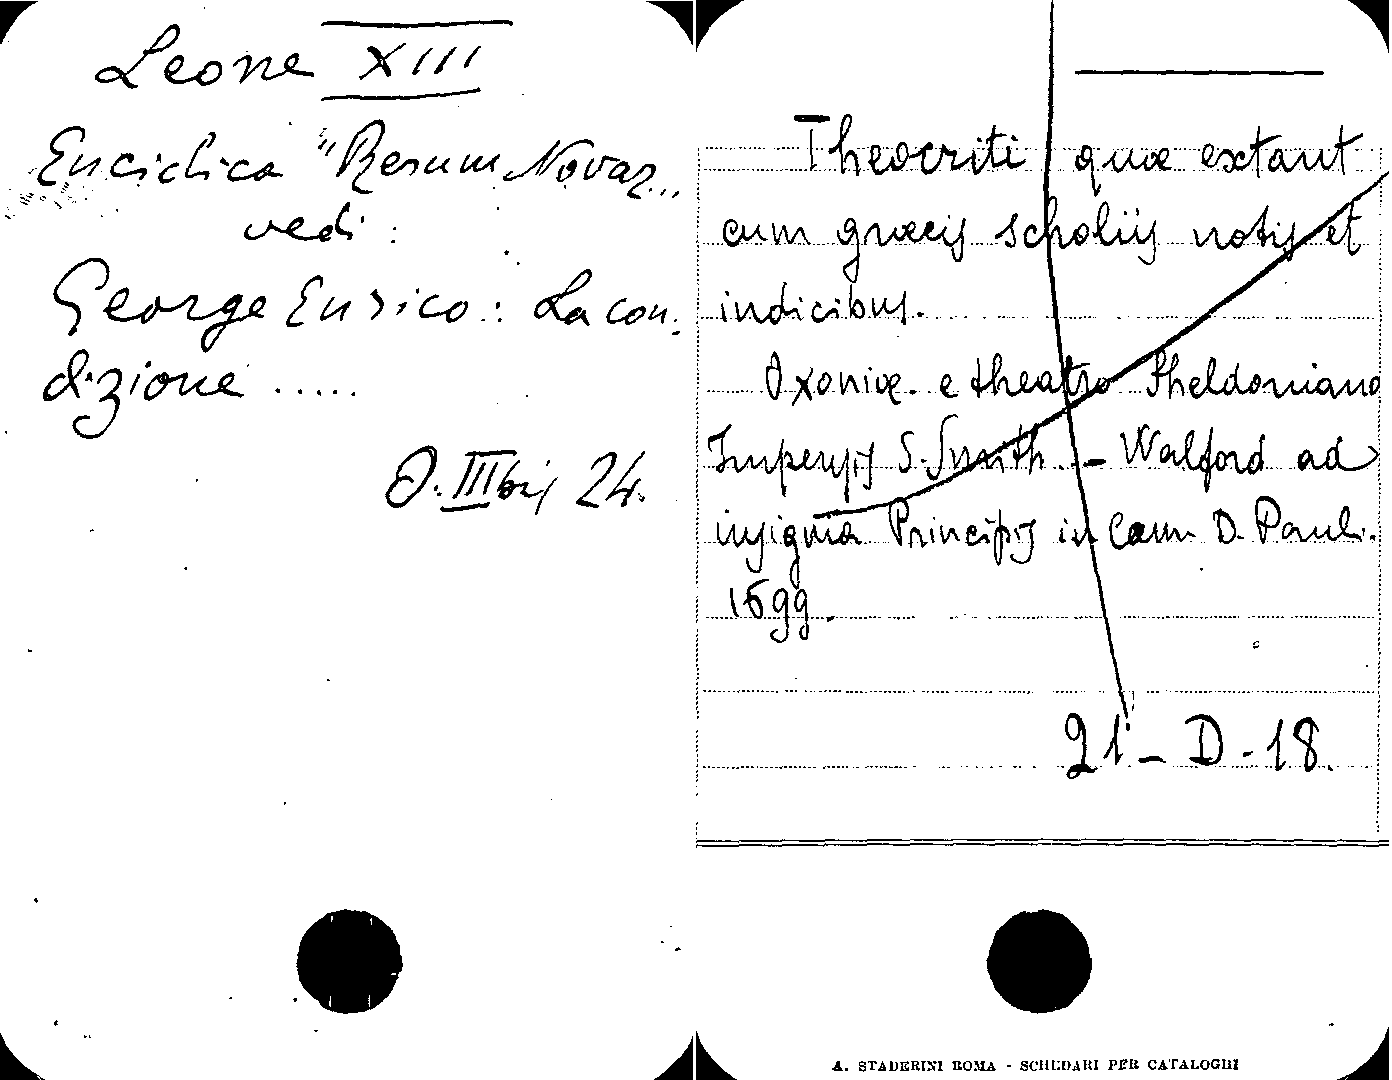 Leone XIII
Enciclica "Rerum Novar...
vedi:
George Enrico: La con-
dizione .....
O. III bis 24.
Theocriti quæ extant
cum græcis scholiis notis et
indicibus.
Oxoniæ. e theatro Sheldoniano
Impensis S. Smith. - Walford ad
insignia Principis in Cæm. D. Pauli.
1699.
21 - D - 18.
A. STADERINI ROMA - SCHEDARI PER CATALOGHI